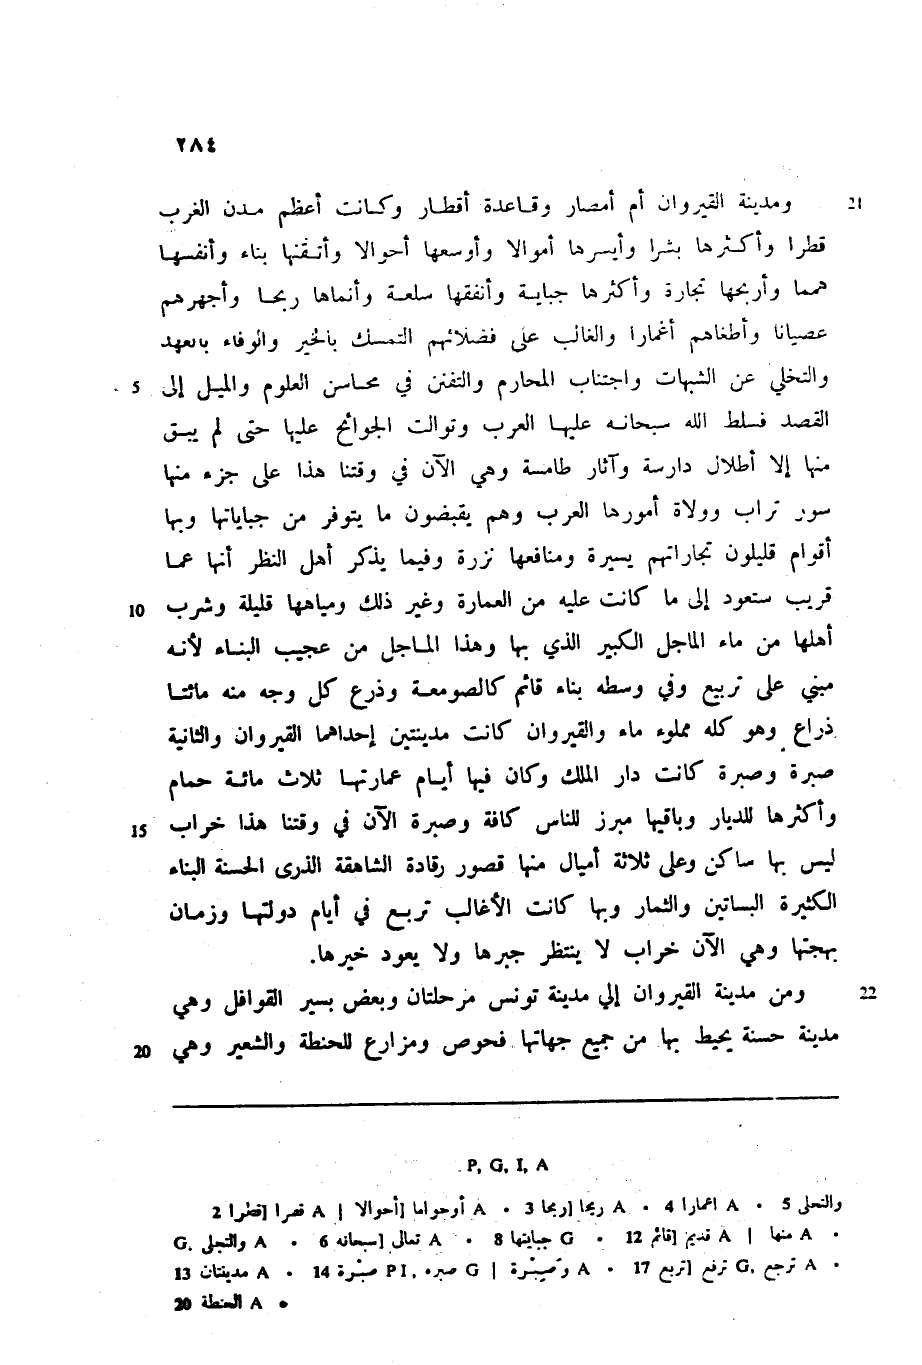 ٢٨٤
21 ومدينة القيروان أم أمصار وقاعدة أقطار وكانت أعظم مدن الغرب
قطرا وأكثرها بشرا وأيسرها أموالا وأوسعها أحوالا وأتقنها بناء وأنفسها
همما وأربحها تجارة وأكثرها جباية وأنفقها سلعة وأنماها ربحا وأجهرهم
عصيانا وأطغاهم أغمارا والغالب على فضلائهم التمسك بالخير والوفاء بالعهد
والتخلي عن الشبهات واجتناب المحارم والتفنن في محاسن العلوم والميل إلى 5
القصد فسلط الله سبحانه عليها العرب وتوالت الجوائح عليها حتى لم يبق
منها إلا أطلال دارسة وآثار طامسة وهي الآن في وقتنا هذا على جزء منها
سور تراب وولاة أمورها العرب وهم يقبضون ما يتوفر من جباياتها وبها
أقوام قليلون تجاراتهم يسيرة ومنافعها نزرة وفيما يذكر أهل النظر أنها عما
قريب ستعود إلى ما كانت عليه من العمارة وغير ذلك ومياهها قليلة وشرب 10
أهلها من ماء الماجل الكبير الذي بها وهذا الماجل من عجيب البناء لأنه
مبني على تربيع وفي وسطه بناء قائم كالصومعة وذرع كل وجه منه مائتا
ذراع وهو كله مملوء ماء والقيروان كانت مدينتين إحداهما القيروان والثانية
صبرة وصبرة كانت دار الملك وكان فيها أيام عمارتها ثلاث مائة حمام
وأكثرها للديار وباقيها مبرز للناس كافة وصبرة الآن في وقتنا هذا خراب 15
ليس بها ساكن وعلى ثلاثة أميال منها قصور رقادة الشاهقة الذرى الحسنة البناء
الكثيرة البساتين والثمار وبها كانت الأغالب تربع في أيام دولتها وزمان
بهجتها وهي الآن خراب لا ينتظر جبرها ولا يعود خيرها.
22 ومن مدينة القيروان إلي مدينة تونس مرحلتان وبعض بسير القوافل وهي
مدينة حسنة يحيط بها من جميع جهاتها فحوص ومزارع للحنطة والشعير وهي 20
P, G, I, A.
2 قطرا] قصرا A | أحوالا] أوحواما A • 3 ربحا] ريحا A • 4 اعمارا A • 5 والتحلى
G, والتجلى A • 6 سبحانه] تعالى A • 8 جبايتها G • 12 قائم] قديم A | منها A •
13 مدينتان A • 14 صبرة P I, صبره G | A • 17 تربع] ترفع G, ترجع A •
20 الحنطة A •